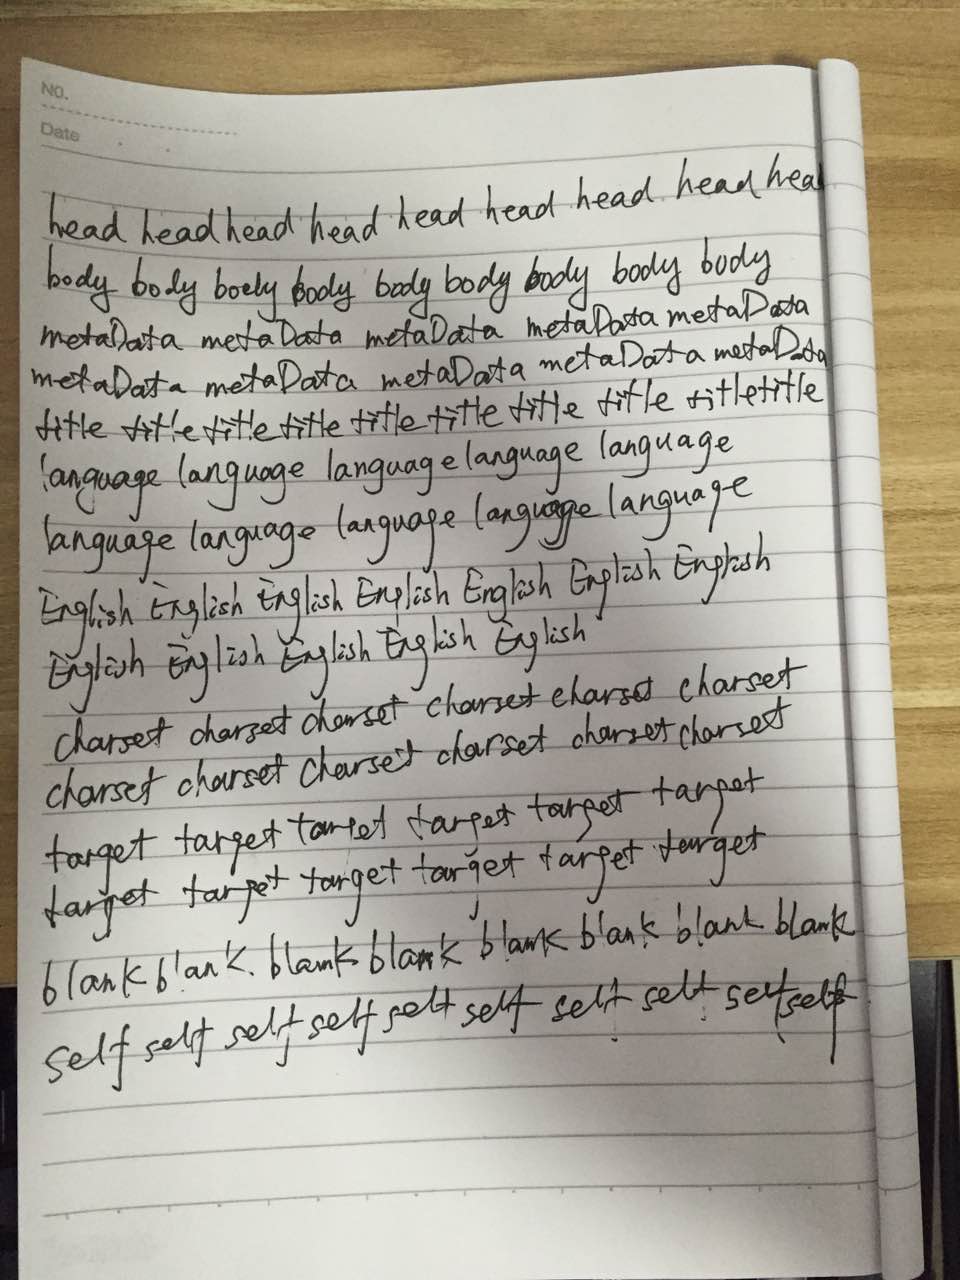 NO.
Date
head head head head head head head head hea
body body boely body body body body body body
metaData metaData metaData metaData metaData
metaData metaData metaData metaData metaData
title title title title title title title title titletitle
language language language language language
language language language language language
English English English English English English English
English English English English English
charset charset charset charset charset charset
charset charset charset charset charset charset
target target target target target target
target target target target target target
blank blank. blank blank blank blank blank blank
self self self self self self self self self self